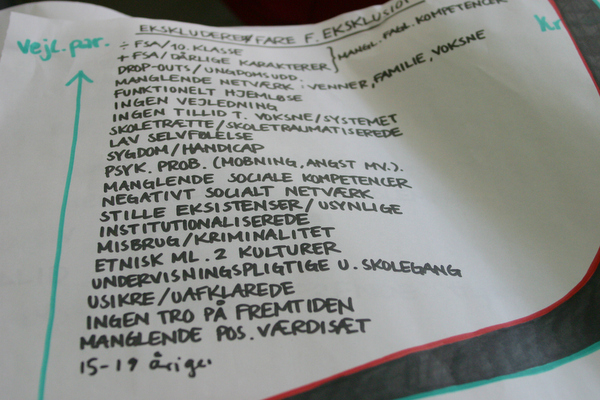 EKSKLUDEREDE/FARE F. EKSKLUSION
Vejl. par.
÷ FSA/10. KLASSE
+ FSA/DÅRLIGE KARAKTERER } MANGL. FAGL. KOMPETENCER
DROP-OUTS/UNGDOMSUDD.
MANGLENDE NETVÆRK: VENNER, FAMILIE, VOKSNE
FUNKTIONELT HJEMLØSE
INGEN VEJLEDNING
INGEN TILLID T. VOKSNE/SYSTEMET
SKOLETRÆTTE/SKOLETRAUMATISEREDE
LAV SELVFØLELSE
SYGDOM/HANDICAP
PSYK. PROB. (MOBNING, ANGST MV.).
MANGLENDE SOCIALE KOMPETENCER
NEGATIVT SOCIALT NETVÆRK
STILLE EKSISTENSER/USYNLIGE
INSTITUTIONALISEREDE
MISBRUG/KRIMINALITET
ETNISK ML. 2 KULTURER
UNDERVISNINGSPLIGTIGE U. SKOLEGANG
USIKRE/UAFKLAREDE
INGEN TRO PÅ FREMTIDEN
MANGLENDE POS. VÆRDISÆT
15-19 årige.